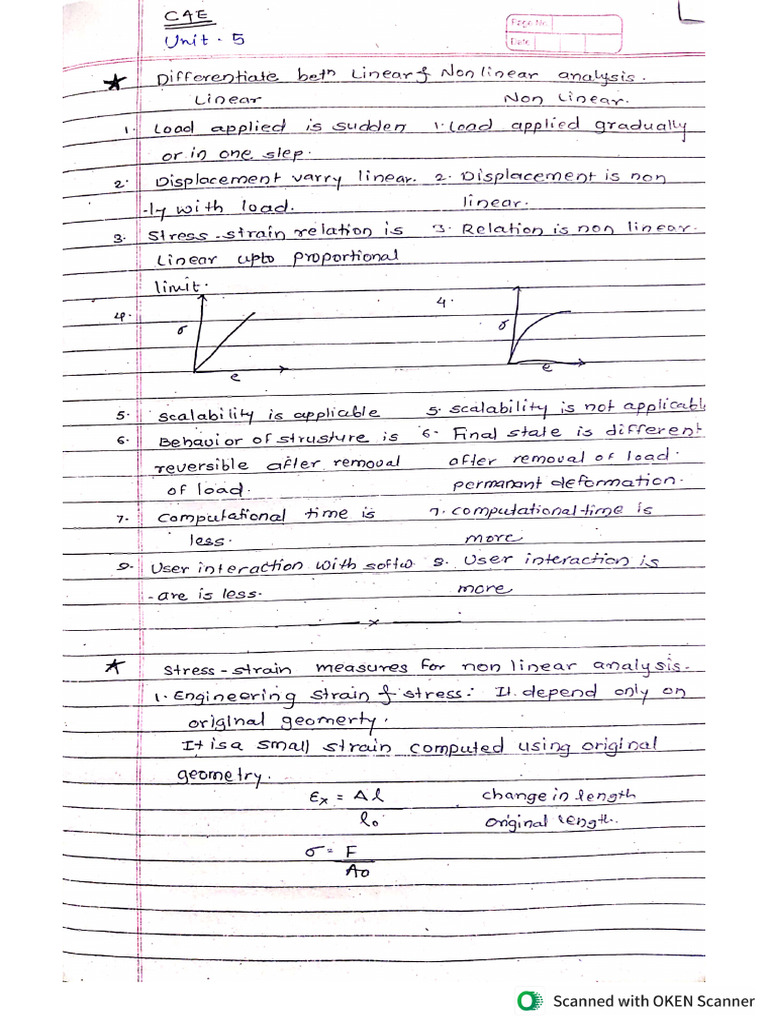 CAE
Unit - 5
Page No.
Date
★ Differentiate betn Linear & Non linear analysis.
Linear Non Linear.
1. Load applied is sudden 1. Load applied gradually
or in one step.
2. Displacement varry linear. 2. Displacement is non
-ly with load. linear.
3. Stress-strain relation is 3. Relation is non linear.
Linear upto proportional
limit.
4. 4.
σ σ
e e
5. scalability is applicable 5. scalability is not applicabl
6. Behavior of strusture is 6. Final state is different
reversible after removal after removal of load.
of load. permanant deformation.
7. computational time is 7. computational time is
less. more
8. User interaction with softw 8. User interaction is
-are is less. more
x
★ Stress-strain measures for non linear analysis.
1. Engineering strain & stress: It depend only on
original geomerty.
It is a small strain computed using original
geometry.
Ex = Δl change in length
lo original length.
σ = F
Ao
Scanned with OKEN Scanner